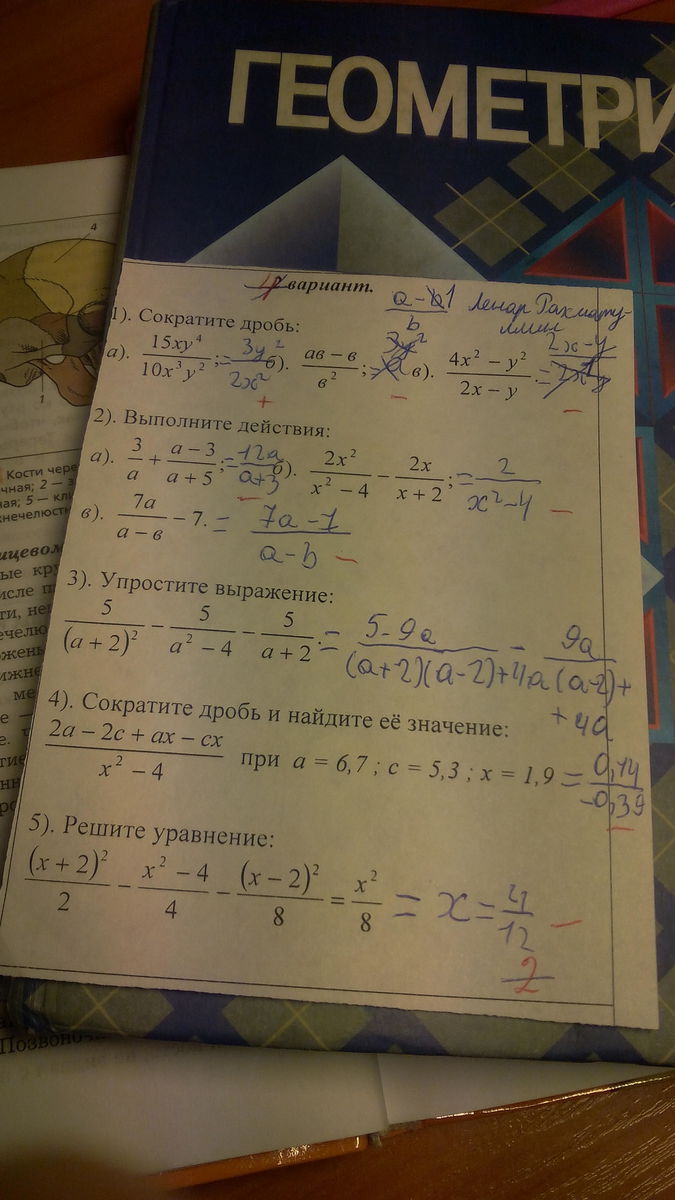 ГЕОМЕТРИ
4 вариант.
a - 1
b
Ленар Рахмату-
ллин
1). Сократите дробь:
а). 15xy⁴ / 10x³y² ; = 3y² / 2x² б). ав − в / в² ; в). 4x² − y² / 2x − y . = 2x - y
+ − −
2). Выполните действия:
а). 3/a + a − 3 / a + 5 ; = 12a / a+3 б). 2x² / x² − 4 − 2x / x + 2 ; = 2 / x² - 4 −
в). 7a / a − в − 7. = 7a - 7 / a - b −
3). Упростите выражение:
5 / (a + 2)² − 5 / a² − 4 − 5 / a + 2 . = 5 - 9a / (a+2)(a-2)+4a - 9a / a(a-2)+
+ 4a
4). Сократите дробь и найдите её значение:
2a − 2c + ax − cx / x² − 4 при a = 6,7 ; c = 5,3 ; x = 1,9 = 0,14 / -0,39
−
5). Решите уравнение:
(x + 2)² / 2 − x² − 4 / 4 − (x − 2)² / 8 = x² / 8 = x = 4 / 12 −
2
4
1
Кости чере
чная; 2 — з
ная; 5 — кл
жнечелюст
ицевом
ые кру
исле п
ти, не
ечелю
ожень
ижне
ме
е —
Позвоноч